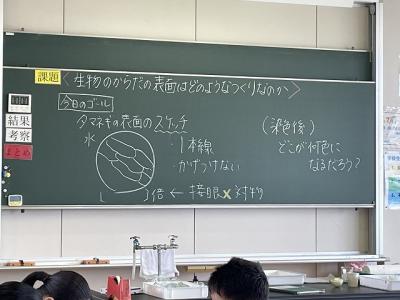 課題
〈生物のからだの表面はどのようなつくりなのか〉
今日のゴール
タマネギの表面のスケッチ
水
・1本線
・かげつけない
[ ]倍 ← 接眼×対物
(染色後)
どこが何色に
なるだろう?
結果
考察
まとめ